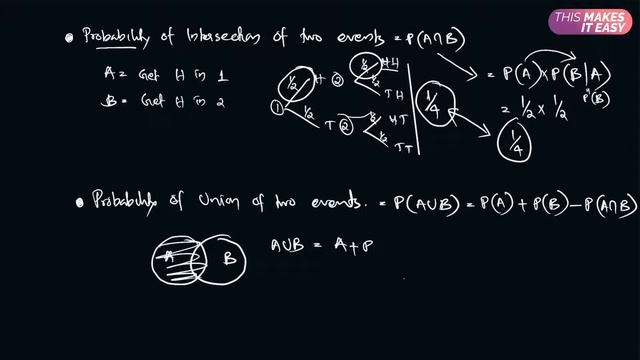 THIS MAKES
IT EASY
• Probability of Intersection of two events = P(A∩B)
A = Get H in 1
B = Get H in 2
1/2 H ② 1/2 HH
TH
① 1/2 T ② 1/2 HT
1/2 TT
1/4
= P(A) × P(B|A)
P(B)
= 1/2 × 1/2
1/4
• Probability of Union of two events. = P(A∪B) = P(A) + P(B) − P(A∩B)
A B A∪B = A + P